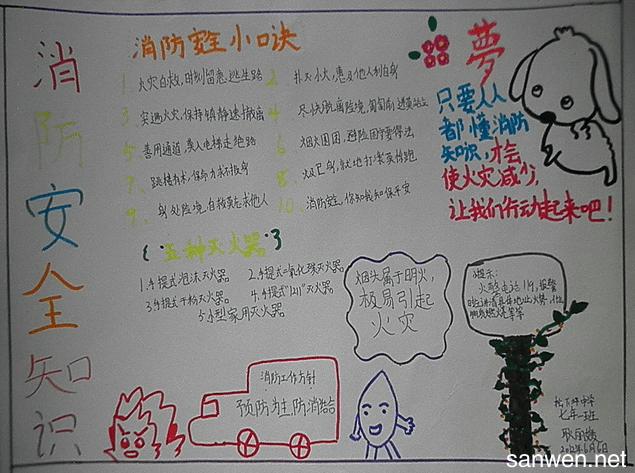 消防安全知识
消防安全小口诀
1、火灾自救,时刻留意,逃生路
2、扑灭小火,惠及他人利自身
3、突遇火灾,保持镇静速撤离
4、尽快脱离险境,
5、善用通道,莫入电梯走绝路
6、烟火围困,避险固守要得法
7、跳楼有术,保命力求
8、火已及身,就地打滚莫惊跑
9、身处险境,自救莫忘救他人
10、消防安全,你知我知保平安
五种灭火器
1.手提式泡沫灭火器
2.手提式二氧化碳灭火器
3.手提式干粉灭火器。
4.手提式“1211”灭火器
5.小型家用灭火器
夢
只要人人
都懂消防
知识,才会
使火灾减少,
让我们行动起来吧!
烟头属于明火,
极易引起
火灾
提示:
火警电话119,报警
消防工作方针
预防为主防消结合
七年一班
2012年6月6日
sanwen.net